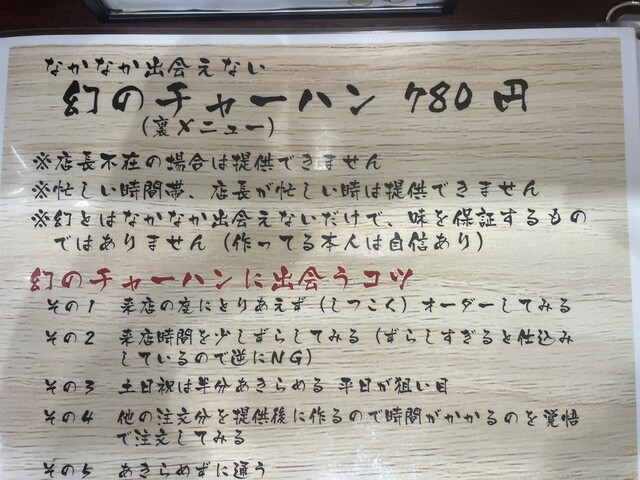 なかなか出会えない
幻のチャーハン 780 円
(裏メニュー)
※店長不在の場合は提供できません
※忙しい時間帯、店長が忙しい時は提供できません
※幻とはなかなか出会えないだけで、味を保証するもの
ではありません (作ってる本人は自信あり)
幻のチャーハンに出会うコツ
その1 来店の度にとりあえず (しつこく) オーダーしてみる
その2 来店時間を少しずらしてみる (ずらしすぎると仕込み
しているので逆にNG)
その3 土日祝は半分あきらめる 平日が狙い目
その4 他の注文分を提供後に作るので時間がかかるのを覚悟
で注文してみる
その5 あきらめずに通う